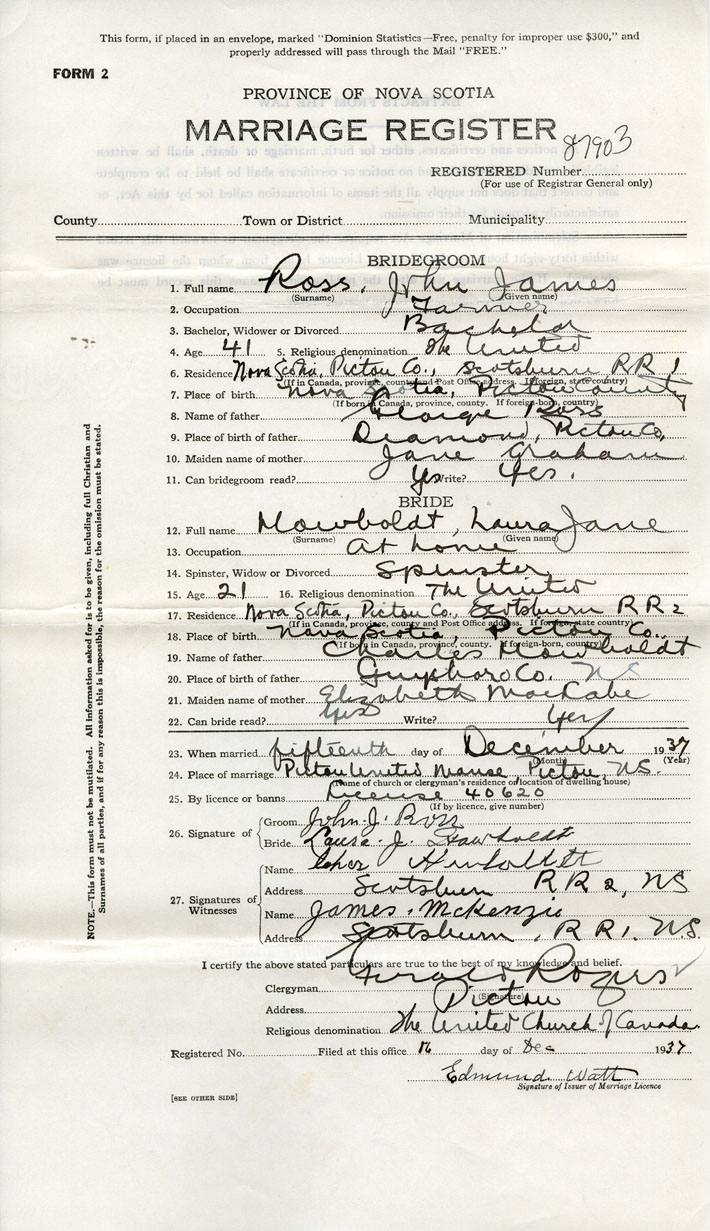 This form, if placed in an envelope, marked "Dominion Statistics—Free, penalty for improper use $300," and
properly addressed will pass through the Mail "FREE."
FORM 2
PROVINCE OF NOVA SCOTIA
MARRIAGE REGISTER
87903
REGISTERED Number
(For use of Registrar General only)
County Town or District Municipality
BRIDEGROOM
1. Full name Ross, John James
(Surname) (Given name)
2. Occupation Farmer
3. Bachelor, Widower or Divorced Bachelor
4. Age 41 5. Religious denomination The United
6. Residence Nova Scotia, Pictou Co., Scotsburn RR 1
(If in Canada, province, county and Post Office address. If foreign, state country)
7. Place of birth Nova Scotia, Pictou County
(If born in Canada, province, county. If foreign-born, country)
8. Name of father George Ross
9. Place of birth of father Diamond, Pictou Co,
10. Maiden name of mother Jane Graham
11. Can bridegroom read? Yes Write? Yes.
BRIDE
12. Full name Howboldt, Laura Jane
(Surname) (Given name)
13. Occupation At home
14. Spinster, Widow or Divorced Spinster
15. Age 21 16. Religious denomination The United
17. Residence Nova Scotia, Pictou Co., Scotsburn RR 2
(If in Canada, province, county and Post Office address. If foreign, state country)
18. Place of birth Nova Scotia, Pictou Co.
(If born in Canada, province, county. If foreign-born, country)
19. Name of father Charles Howboldt
20. Place of birth of father Guysboro Co. NS
21. Maiden name of mother Elizabeth MacCabe
22. Can bride read? Yes Write? Yes
23. When married fifteenth day of December 1937
(Month) (Year)
24. Place of marriage Pictou United Manse, Pictou, NS.
(Name of church or clergyman's residence or location of dwelling house)
25. By licence or banns License 40620
(If by licence, give number)
26. Signature of Groom John J. Ross
Bride Laura J. Howboldt
27. Signatures of Witnesses
Name
Address Scotsburn RR 2, NS
Name James McKenzie
Address Scotsburn, RR 1. N.S.
I certify the above stated particulars are true to the best of my knowledge and belief.
Clergyman Gerald Rogers
(Signature)
Address Pictou
Religious denomination The United Church of Canada.
Registered No. Filed at this office 16 day of Dec 1937
Edmund Watt
Signature of Issuer of Marriage Licence
[SEE OTHER SIDE]
NOTE.—This form must not be mutilated. All information asked for is to be given, including full Christian and
Surnames of all parties, and if for any reason this is impossible, the reason for the omission must be stated.